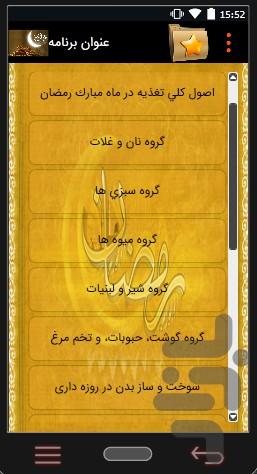 15:52
عنوان برنامه
اصول كلي تغذيه در ماه مبارك رمضان
گروه نان و غلات
گروه سبزي ها
گروه ميوه ها
گروه شیر و لبنیات
گروه گوشت، حبوبات، و تخم مرغ
سوخت و ساز بدن در روزه داری